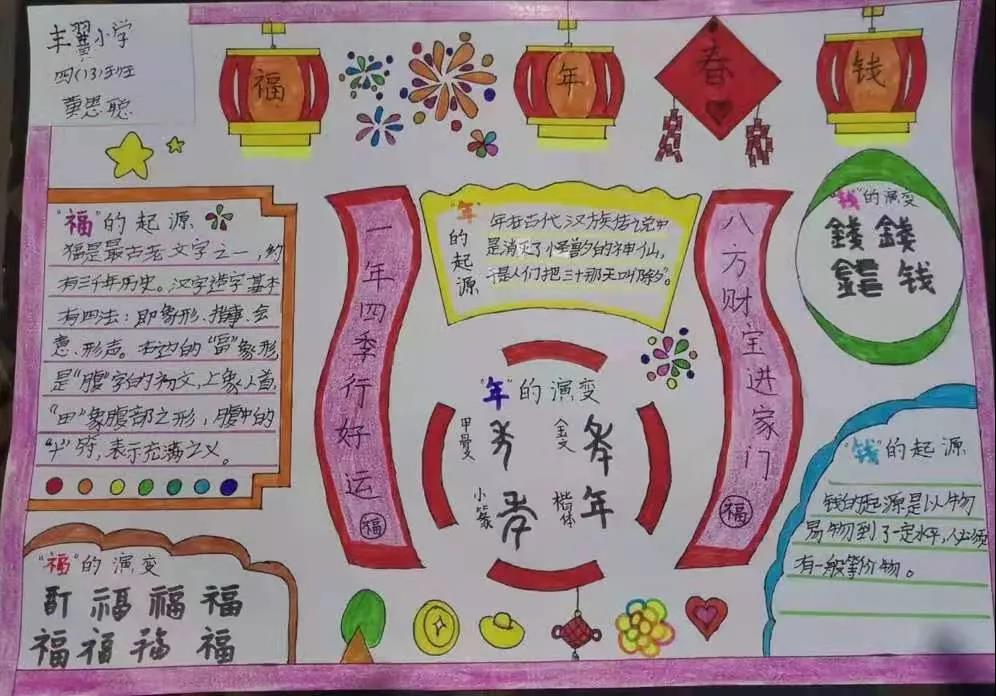 丰翼小学
四(13)班
莫思聪
福
年
春
钱
"福"的起源
福是最古老文字之一，约
有三千年历史。汉字造字基本
有四法：即象形、指事、会
意、形声。右边的"畐"象形，
是"腹"字的初文，上象人首，
"田"象腹部之形，腹中的
"十"符，表示充满之义。
一年四季行好运
福
"年"的起源
年在古代汉族传说中
是消灭了怪兽夕的神仙，
于是人们把三十那天叫除夕。
八方财宝进家门
福
"钱"的演变
錢 錢
钱
"年"的演变
甲骨文
金文
小篆
楷体
年
"福"的演变
福 福 福
福 福 福 福
"钱"的起源
钱的起源是以物
易物到了一定水平，人必须
有一般等价物。